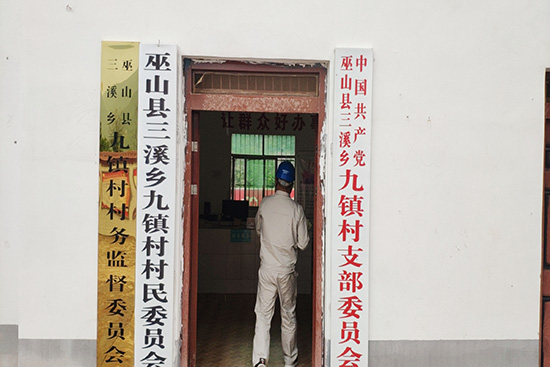 巫山县
三溪乡
九镇村村务监督委员会
巫山县三溪乡九镇村村民委员会
中国共产党
巫山县三溪乡
九镇村支部委员会
让群众好办